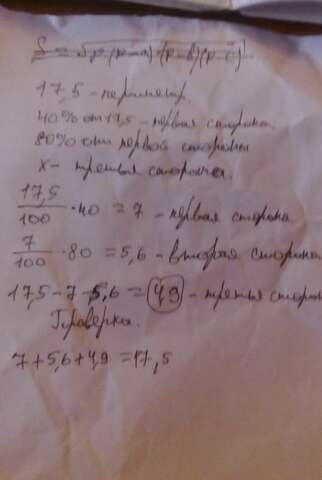 S = √p(p-a)·(p-b)(p-c)
17,5 - периметр.
40% от 17,5 - первая сторона
80% от первой стороны
x - третья сторона.
17,5/100 · 40 = 7 - первая сторона
7/100 · 80 = 5,6 - вторая сторона
17,5 - 7 - 5,6 = 4,9 - третья сторон
Проверка.
7 + 5,6 + 4,9 = 17,5